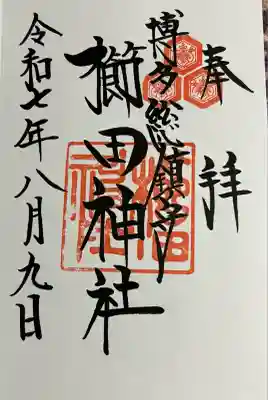 奉拝
博多總鎮守
櫛田神社
令和七年八月九日